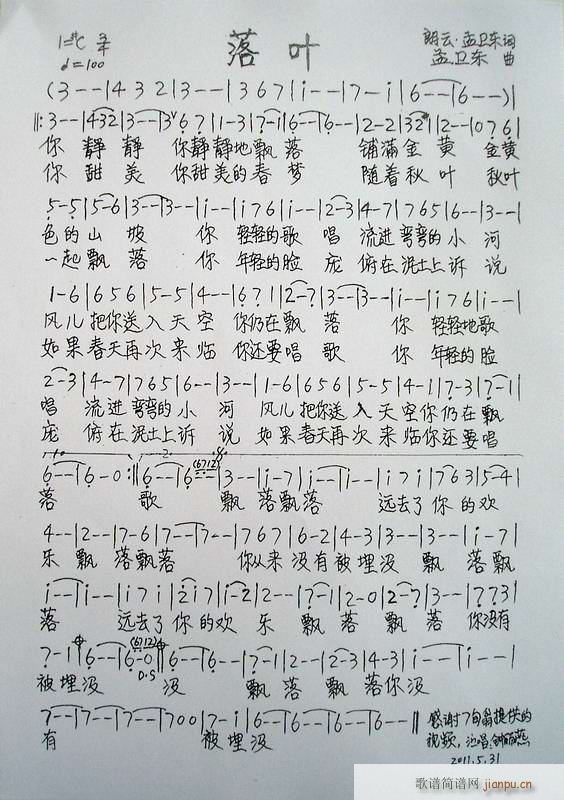 1=#C 3/4 落叶 朗云·孟卫东词
♩=100 孟卫东 曲
(3 - - | 4 3 2 | 3 - - | 3 6 7 | i - - | 7 - i | 6 - - | 6 - - )|
‖: 3 - - | 4 3 2 | 3 - - | 3 6 7 | 1 - 3 | 7 - 1 | 6 - - | 6 - - | 2 - 2 | 3 2 1 | 2 - - | 0 7 6 |
你 静 静 你静静地飘落 铺满金黄 金黄
你 甜 美 你甜美的春梦 随着秋叶 秋叶
5 - 5 | 5 - 6 | 3 - - | 3 - - | i - - | i 7 6 | i - - | 2 - 3 | 4 - 7 | 7 6 5 | 6 - - | 3 - - |
色的山坡 你 轻轻的歌 唱 流进弯弯的小 河
一起飘落 你 年轻的脸 庞 俯在泥土上诉 说
1 - 6 | 6 5 6 | 5 - 5 | 4 - - | 6 7 1 | 2 - 7 | 3 - - | 3 - - | i - - | i 7 6 | i - - |
风儿把你送入天空 你仍在飘 落 你 轻轻地歌
如果春天再次来临 你还要唱 歌 你 年轻的脸
2 - 3 | 4 - 7 | 7 6 5 | 6 - - | 3 - - | 1 - 6 | 6 5 6 | 5 - 5 | 4 - 1 | 7 - 3 | 7 - 1 |
唱 流进弯弯的小 河 风儿把你送入天空你仍在飘
庞 俯在泥土上诉 说 如果春天再次来临你还要唱
6 - - | 6 - 0 :‖ 6 - - | 6 - - (6712) | 3 - - | i - 7 | i - - | i - - | i 7 i | 7 6 3 | 5 - 4 |
落 歌 飘 落飘落 远去了你的欢
4 - - | 2 - - | 7 - 6 | 7 - - | 7 - - | 7 6 7 | 6 - 2 | 4 - 3 | 3 - - | 3 - - | i - 7 |
乐 飘 落飘落 你从来没有被埋没 飘 落飘
i - - | i - - | i 7 i | 2 i 7 | i - 2 | 2 - - | 7 - 1 | 2 - 0 | 2 - 7 | 3 - - | 7 7 3 |
落 远去了你的欢 乐 飘 落 飘 落 你没有
7 - 1 | 6 - - | 6 - 0 (6712) D.S ‖ 6 - - | 6 - - | 7 - 1 | 2 - - | 2 - 3 | 4 - 3 | i - - | i - - |
被埋没 没 飘 落 飘 落你没
7 - - | 7 - - | 7 - - | 7 0 0 | 7 - i | 6 - - | 6 - - | 6 - - | 6 - - ‖
有 被埋没
感谢7旬翁提供的
视频,
2011.5.31
歌谱简谱网
jianpu.cn